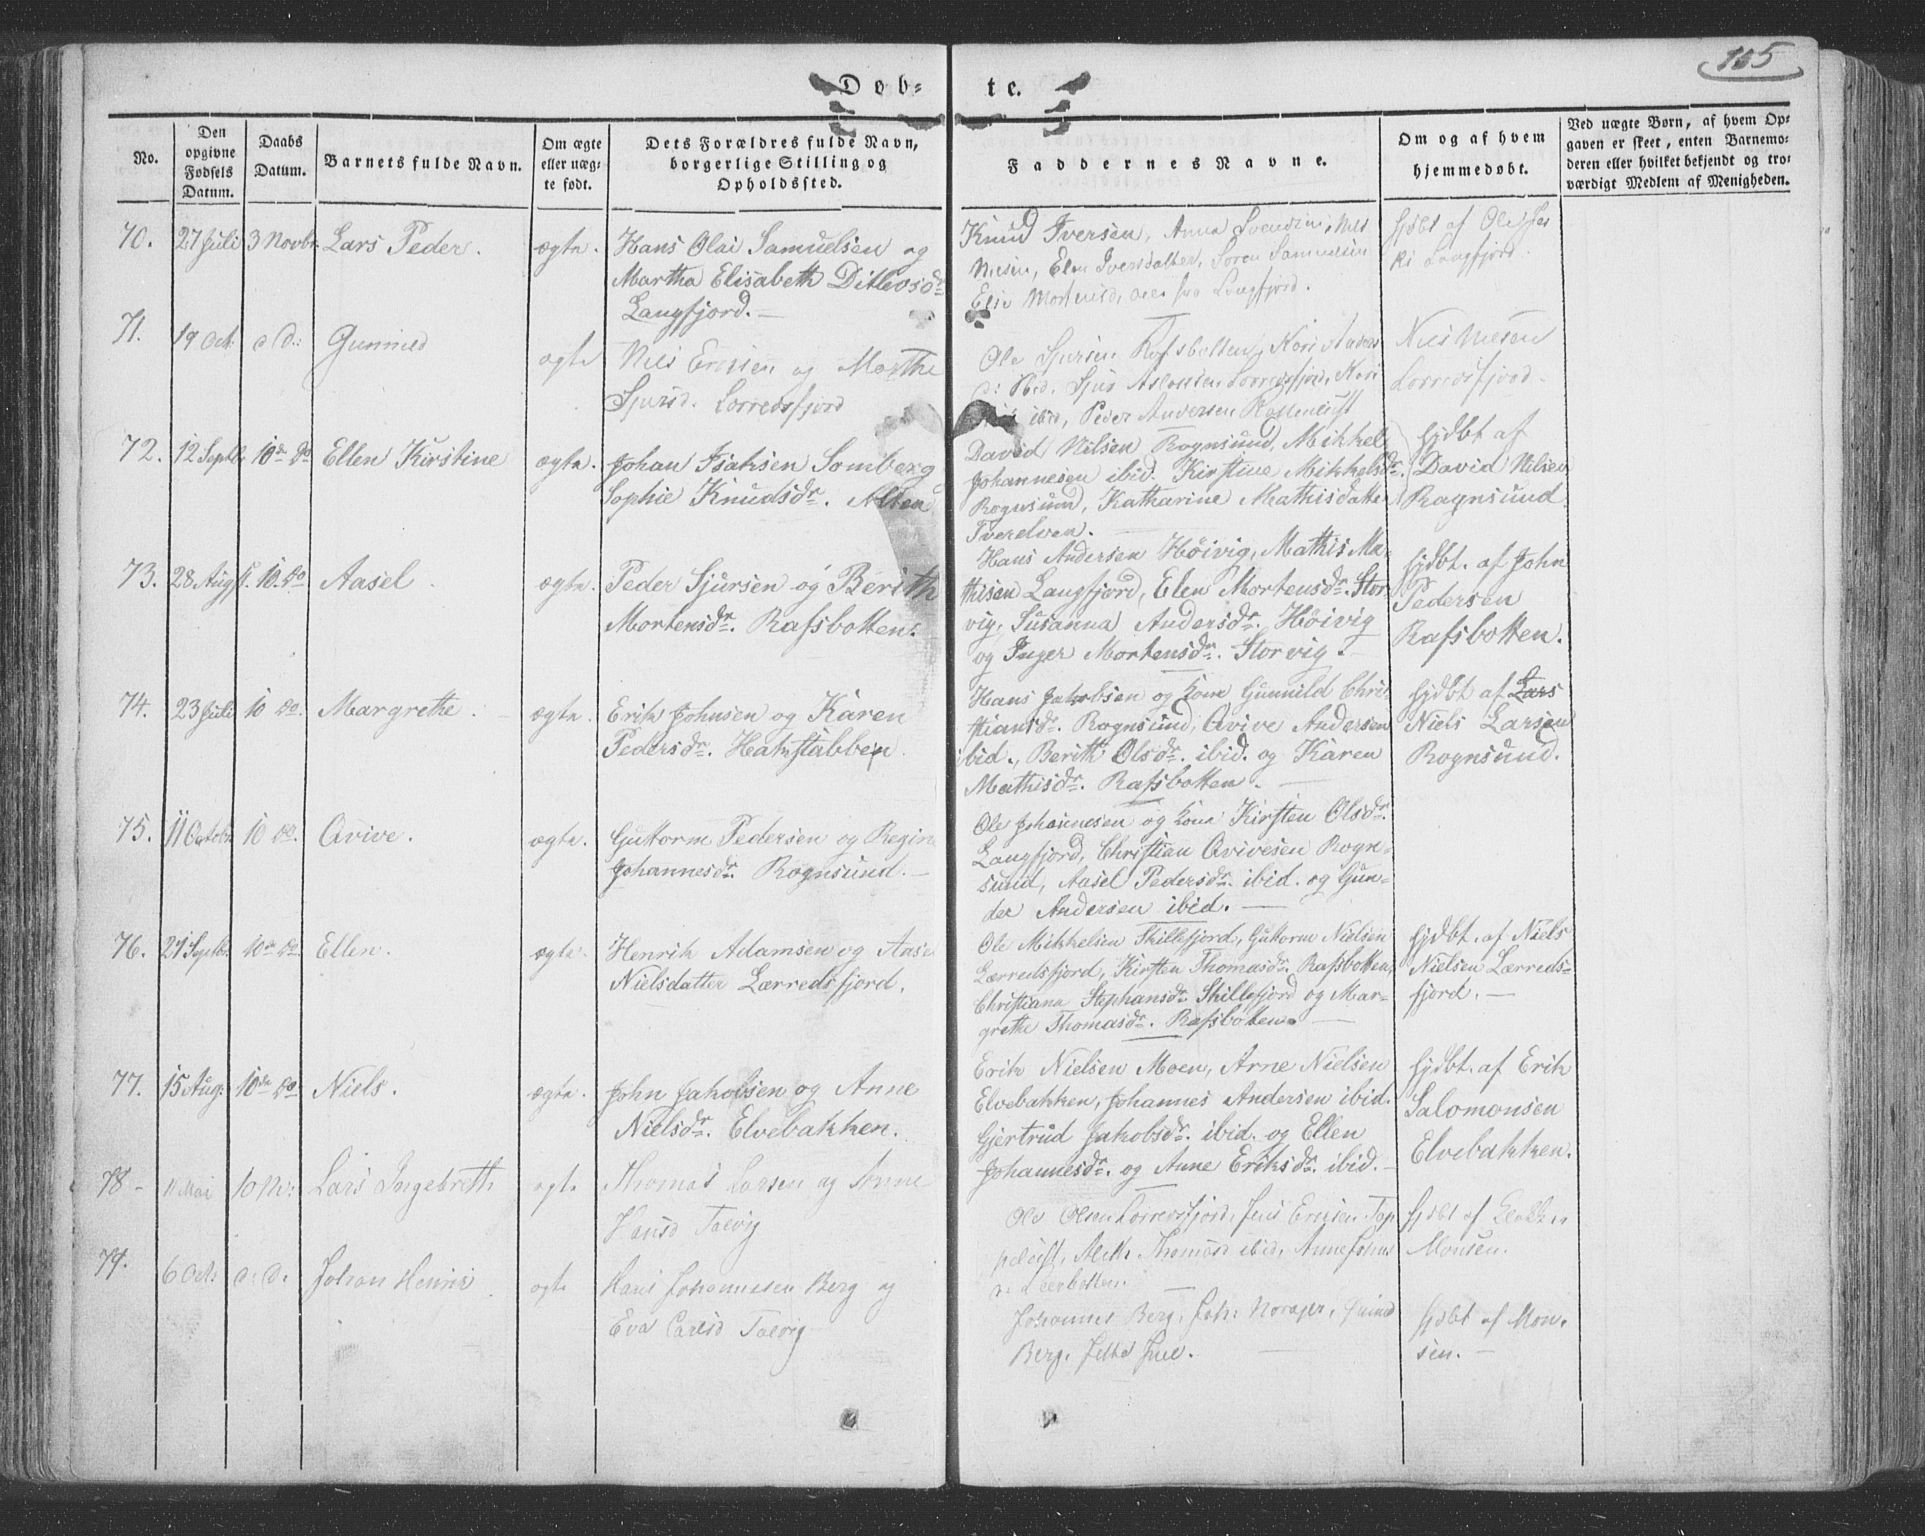 105
Døb= te.
No.
Den opgivne Fødsels Datum.
Daabs Datum.
Barnets fulde Navn.
Om ægte eller uæg- te født.
Dets Forældres fulde Navn, borgerlige Stilling og Opholdssted.
Faddernes Navne.
Om og af hvem hjemmedøbt.
Ved uægte Børn, af hvem Op- gaven er skeet, enten Barnemo- deren eller hvilket bekjendt og tro- værdigt Medlem af Menigheden.
70. 27 Juli 3 Novbr Lars Peder. ægte. Hans Olai Samuelsen og
Martha Elisabeth Ditlevsdr
Langfjord.
Knud Iversen, Anna Svendin, Nils
Nilsen, Elen Iversdatter, Søren Samuelsen
Elie Mortensd, alle fra Langfjord.
hjdbt af Ole
Langfjord.
71. 19 Oct. d d: Gunnild ægte Nils Ericsen og Marthe
Sjursd. Lorredsfjord
Ole Sjursen Rafsbotten, Kari Anders
Ibid, Sjur Aslaksen Lorredsfjord, Kari
ibid, Peder Andersen
Nils Nilsen
Lorredsfjord.
72. 12 Septbr 10de do Ellen Kirstine ægte. Johan Isaksen Somberg
Sophie Knudsdr. Alten
David Nilsen Rognsund, Mikkel
Johannesen ibid. Kirstine Mikkelsdr.
Rognsund, Katharine Mathisdatter
Tverelven.
hjdbt af
David Nilsen
Rognsund
73. 28 Augst. 10. do Aasel. ægte. Peder Sjursen og Berith
Mortensdr. Rafsbotten.
Hans Andersen Høivig, Mathis Ma-
thisen Langfjord, Elen Mortensdr. Stor-
vig, Susanna Andersdr. Høivig
og Inger Mortensdr. Storvig.
hjdbt. af John
Pedersen
Rafsbotten.
74. 23 Juli 10 do. Margrethe. ægte. Erik Johnsen og Karen
Pedersdr. Hakstabben.
Hans Jakobsen og Kone Gunnild Chri-
stiansdr. Rognsund, Avive Andersen
ibid., Berith Olsdr. ibid. og Karen
Mathisdr. Rafsbotten.
hjdbt af Lars
Niels Larsen
Rognsund.
75. 11 Octobr 10 do. Avive. ægte. Guttorm Pedersen og Regine
Johannesdr. Rognsund.
Ole Johannesen og Kone Kirsten Olsdr.
Langfjord, Christian Avivesen Rogn-
sund, Aasel Pedersdr. ibid. og Gun-
der Andersen ibid.
76. 21 Septbr. 10de do. Ellen. ægte. Henrik Adamsen og Aase
Nielsdatter Lærredsfjord.
Ole Mikkelsen Skillefjord, Guttorm Nielsen
Lærredsfjord, Kirsten Thomasdr. Rafsbotten,
Christiana Stephansdr. Skillefjord og Mar-
grethe Thomasdr. Rafsbotten.
hjdbt. af Niels
Nielsen Lærreds=
fjord.
77. 15 Aug: 10de do Niels. ægte. John Jakobsen og Anne
Nielsdr. Elvebakken.
Erik Nielsen Moen, Arne Nielsen
Elvebakken, Johannes Andersen ibid.
Gjertrud Jakobsdr. ibid. og Ellen
Johannesdr. og Anne Eriksdr. ibid.
hjdbt. af Erik
Salomonsen
Elvebakken.
78 11 Mai 10 Lars Ingebreth ægte Thomas Larsen og Anne
Hansd Talvig
Ole Olsen Lorredsfjord, Jens Ericsen
Thomasd ibid, Anne Johns
hjdbt af Klokker
Monsen.
79. 6 Oct: d: d. Johan Henrik ægte Hans Johannessen Berg og
Eva Carlsd Talvig
Johannes Berg, Joh:
Berg,
hjdbt af Mon-
sen.